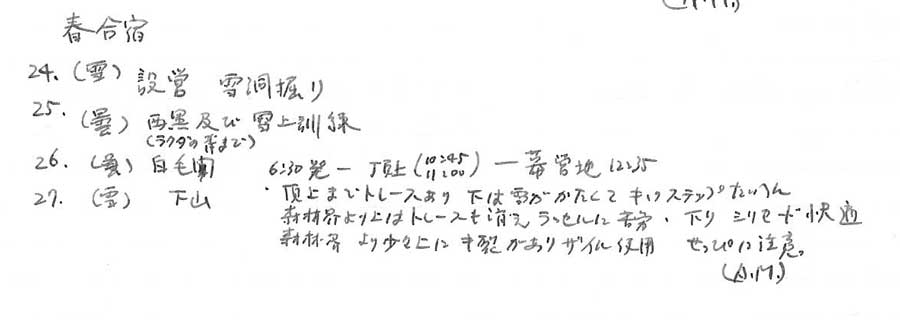 (A.M.)
春合宿
24. (雪) 設営 雪洞掘り
25. (曇) 西黒及び 雪上訓練
(ラクダの背まで)
26. (曇) 白毛門 6:30発 ー 頂上 (10:45 11:00) ー 幕営地 12:35
27. (雪) 下山 ・頂上までトレースあり 下は雪がかたくて キックステップたいへん
森林界より上はトレースも消え ラッセルに苦労、下り シリセード快適
森林界 より少々上に 亀裂がありザイル使用 せっぴに注意。
(A.M.)